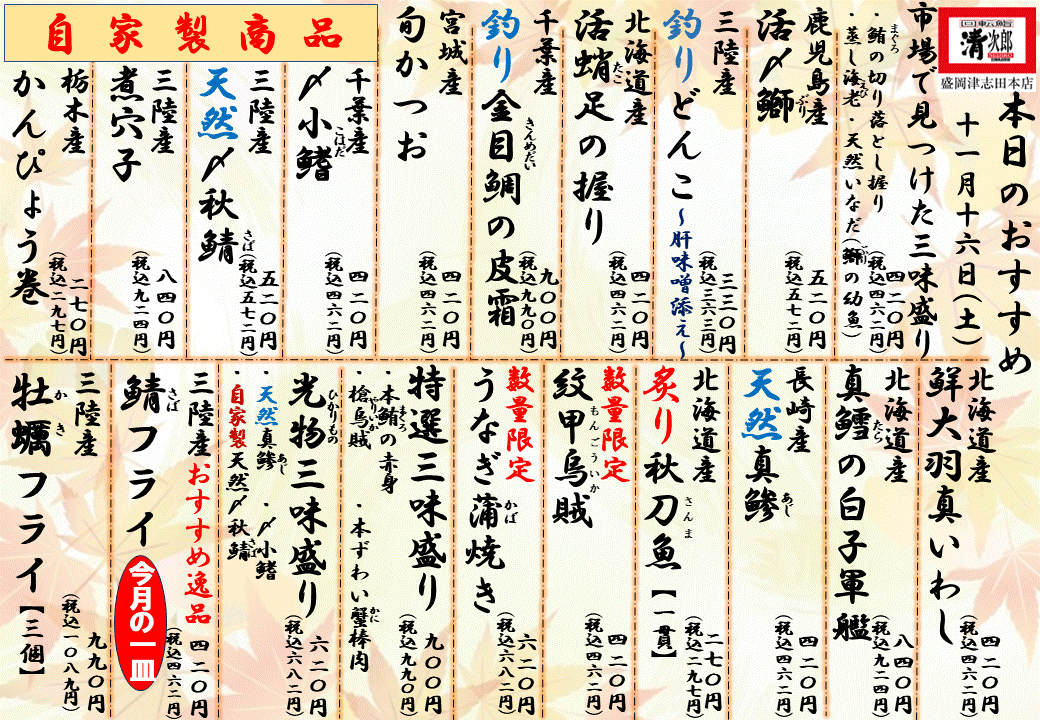 回転鮨
清次郎
SEIJIRO
盛岡津志田本店
本日のおすすめ
十一月十六日(土)
市場で見つけた三味盛り
・鮪の切り落とし握り
まぐろ
・蒸し海老・天然いなだ(鰤の幼魚)
えび
ぶり
四二〇円
(税込四六二円)
鹿児島産
活〆鰤
ぶり
五二〇円
(税込五七二円)
三陸産
釣りどんこ~肝味噌添え~
三三〇円
(税込三六三円)
北海道産
活蛸足の握り
たこ
四二〇円
(税込四六二円)
千葉産
釣り金目鯛の皮霜
きんめだい
九〇〇円
(税込九九〇円)
宮城産
旬かつお
四二〇円
(税込四六二円)
自家製商品
千葉産
〆小鰭
こはだ
四二〇円
(税込四六二円)
三陸産
天然〆秋鯖
さば
五二〇円
(税込五七二円)
三陸産
煮穴子
八四〇円
(税込九二四円)
栃木産
かんぴょう巻
二七〇円
(税込二九七円)
北海道産
鮮大羽真いわし
四二〇円
(税込四六二円)
北海道産
真鱈の白子軍艦
たら
八四〇円
(税込九二四円)
長崎産
天然真鯵
あじ
四二〇円
(税込四六二円)
北海道産
炙り秋刀魚【一貫】
さんま
二七〇円
(税込二九七円)
数量限定
紋甲烏賊
もんごういか
四二〇円
(税込四六二円)
数量限定
うなぎ蒲焼き
かば
六二〇円
(税込六八二円)
特選三味盛り
・本鮪の赤身
まぐろ
・本ずわい蟹棒肉
かに
・槍烏賊
やりいか
九〇〇円
(税込九九〇円)
光物三味盛り
ひかりもの
・天然真鯵
あじ
・〆小鰭
・自家製天然〆秋鯖
さば
六二〇円
(税込六八二円)
三陸産
おすすめ逸品
鯖フライ
さば
今月の一皿
四二〇円
(税込四六二円)
三陸産
牡蠣フライ【三個】
かき
九九〇円
(税込一〇八九円)